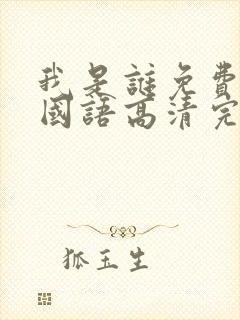 我是誰免費
國語高清完
狐玉生